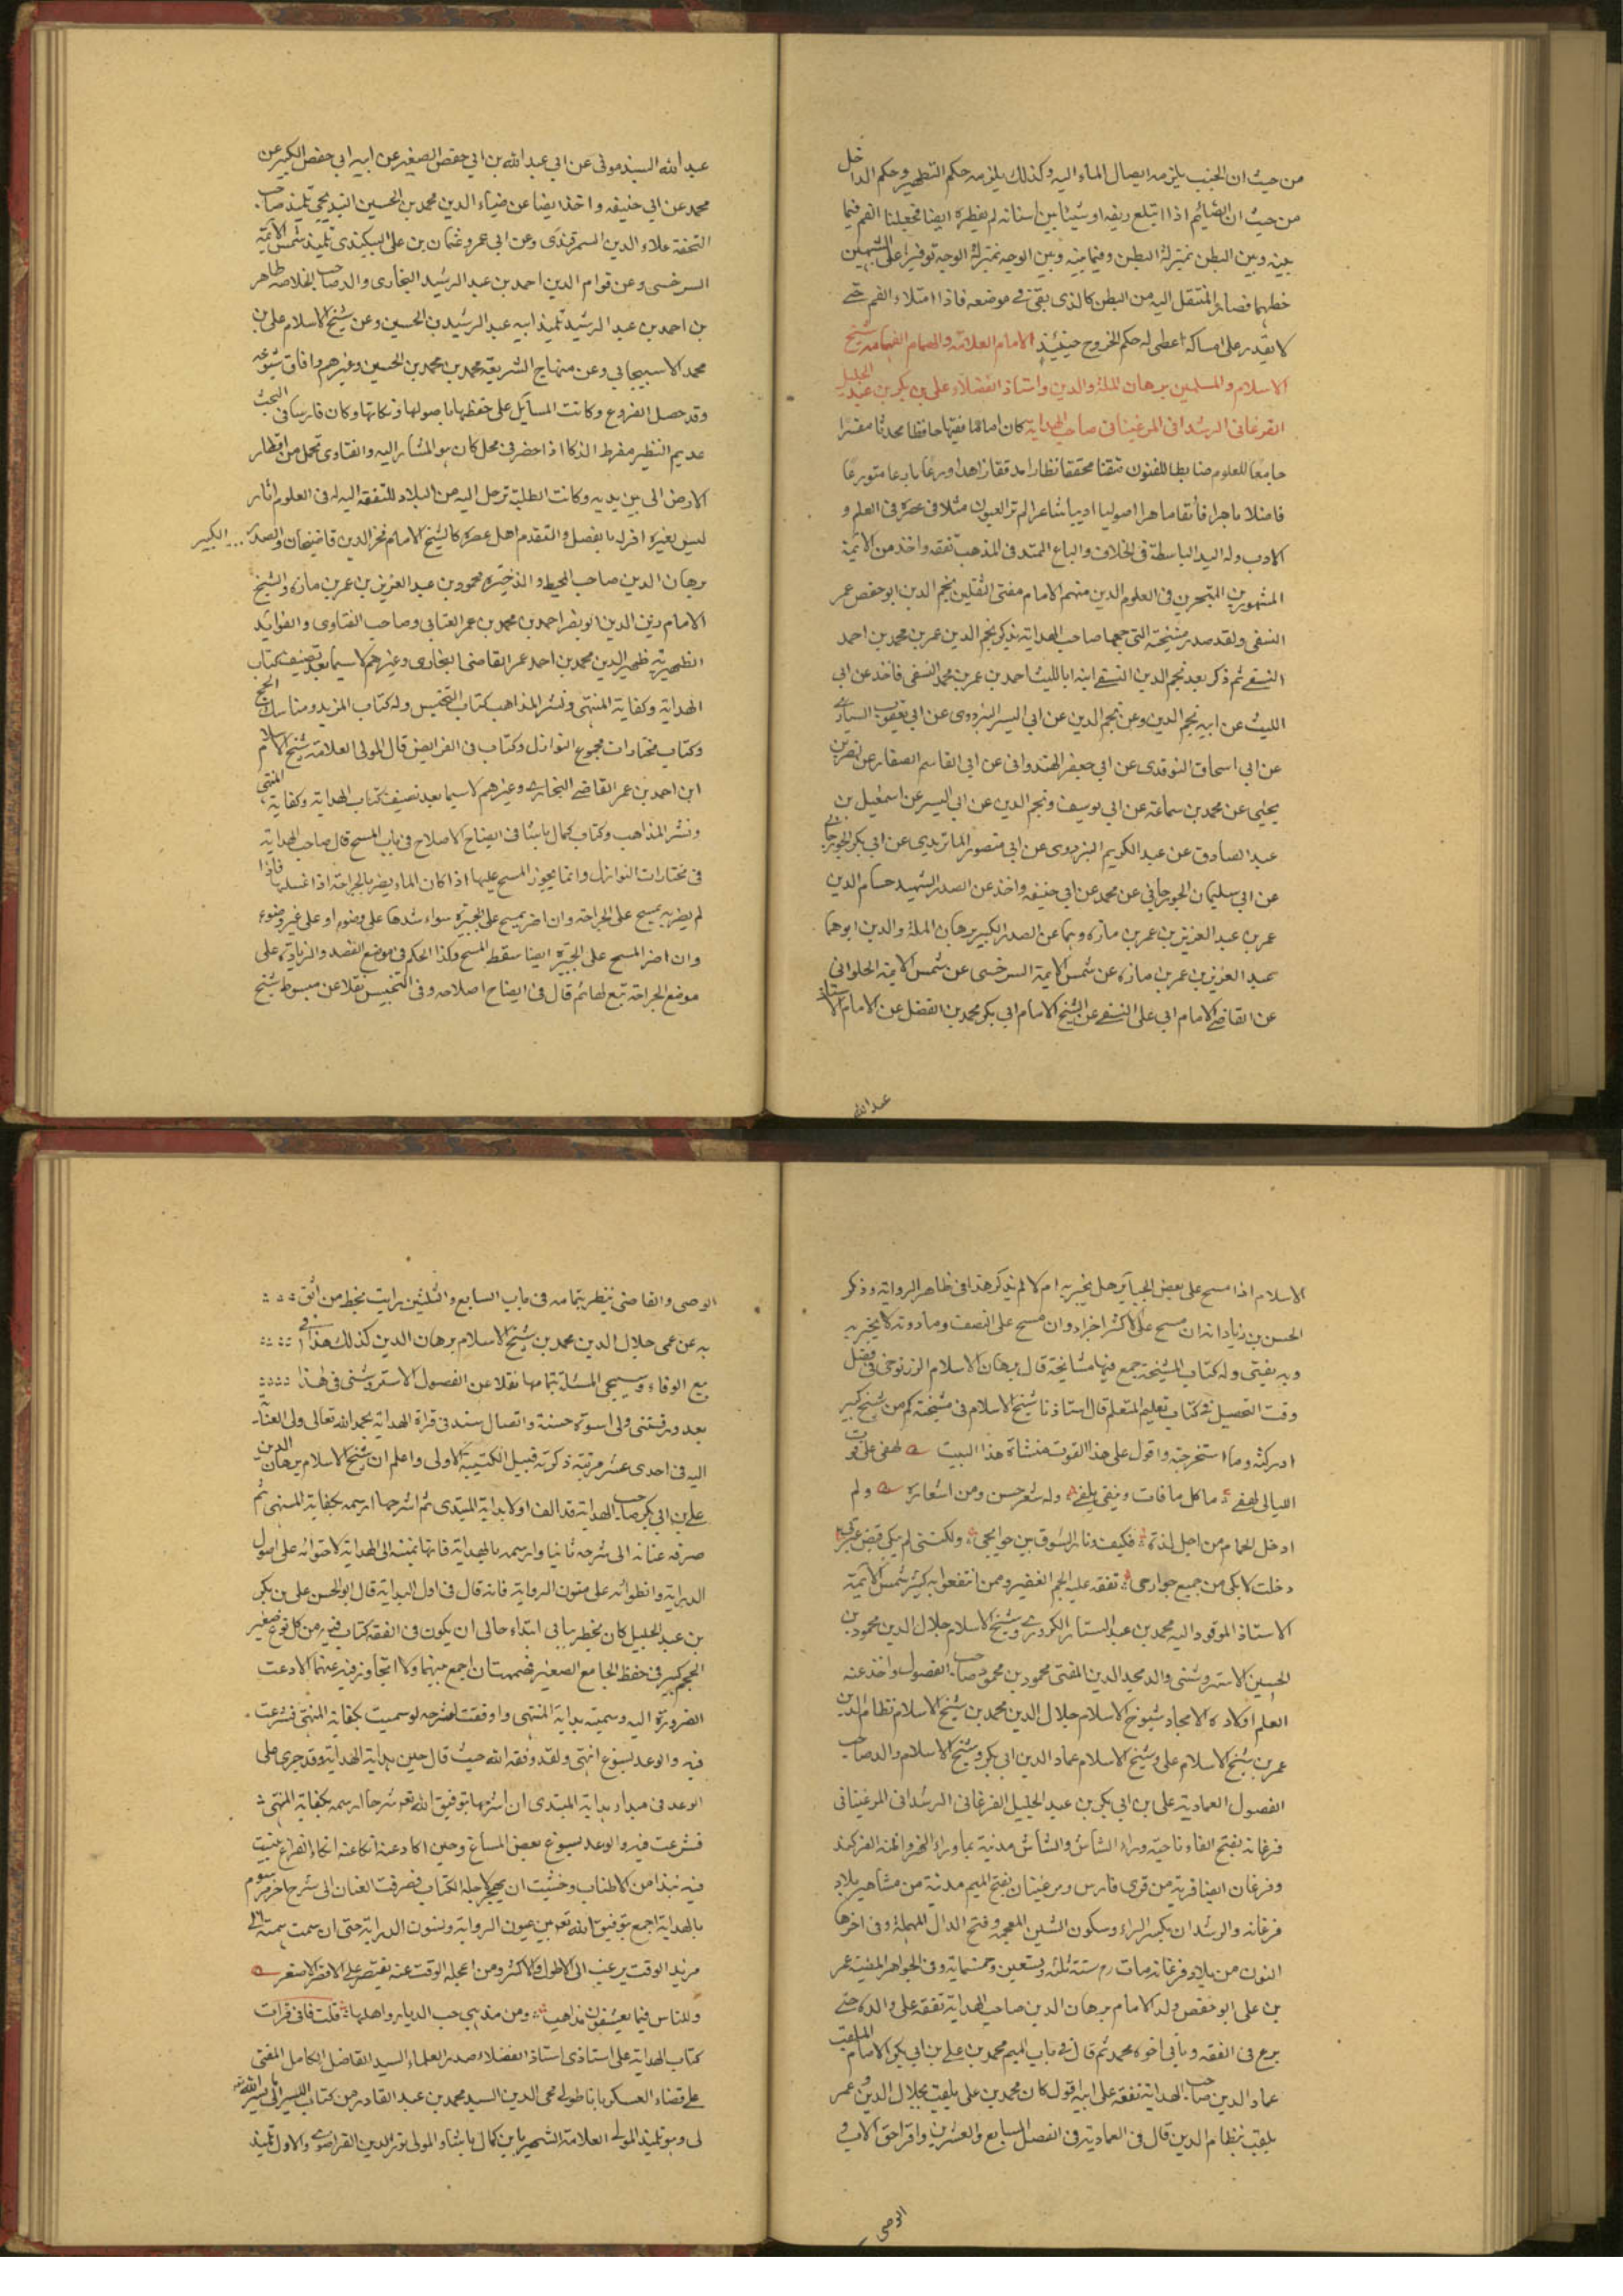 من حيث ان الجنب يلزمه ايصال الماء اليه وكذلك يلزمه حكم التطهير وحكم الداخل
من حيث ان الصائم اذا ابتلع ريقه او شيئا بين اسنانه لم يفطره ايضا فجعلنا الفم فيما
بينه وبين البطن بمنزلة البطن وفيما بينه وبين الوجه بمنزلة الوجه توفيرا على الشبهين
خطهما فصار المنتقل اليه من البطن كالذى بقى فى موضعه فاذا امتلاء الفم حتى
لا يقدر على امساكه اعطى له حكم الخروج حينئذ الامام العلامة والهمام الفهامة شيخ
الاسلام والمسلمين برهان الملة والدين واستاذ الفضلاء على بن بكر بن عبد الجليل
الفرغانى الرشدانى المرغينانى صاحب الهداية كان اماما فقيها حافظا محدثا مفسرا
جامعا للعلوم ضابطا للفنون متقنا محققا نظارا مدققا زاهدا ورعا بارعا متورعا
فاضلا ماجرا فائقا ماهرا اصوليا اديبا شاعرا لم تر العيون مثلا فى عصره فى العلم و
الادب وله اليد الباسطة فى الخلاف والباع الممتد فى المذهب تفقه واخذ من الائمة
المشهورين المتبحرين فى العلوم الدين منهم الامام مفتى الثقلين نجم الدين ابو حفص عمر
النسفى ولقد صدر مشيخته التى جمعها صاحب الهداية بذكر نجم الدين عمر بن محمد بن احمد
النسفى ثم ذكر بعد نجم الدين النسفى ابنه ابا الليث احمد بن عمر بن محمد النسفى فاخذ عن ابى
الليث عن ابيه نجم الدين وعن نجم الدين عن ابى اليسر البزدوى عن ابى يعقوب السيارى
عن ابى اسحاق النوقدى عن ابى جعفر الهندوانى عن ابى القاسم الصفار عن نصر بن
يحيى عن محمد بن سماعة عن ابى يوسف ونجم الدين عن ابى اليسر عن اسمعيل بن
عبد الصادق عن عبد الكريم البزدوى عن ابى منصور الماتريدى عن ابى بكر الجوزجانى
عن ابى سليمان الجوزجانى عن محمد عن ابى حنيفه واخذ عن الصدر الشهيد حسام الدين
عمر بن عبد العزيز بن عمر بن مازه وهما عن الصدر الكبير برهان الملة والدين ابوهما
عبد العزيز بن عمر بن مازه عن شمس الائمة السرخسى عن شمس الائمة الحلوانى
عن القاضى الامام ابى على النسفى عن الشيخ الامام ابى بكر محمد بن الفضل عن الامام الاستاذ
عبد الله
عبد الله السبذمونى عن ابى عبد الله بن ابى حفص الصغير عن ابيه ابى حفص الكبير عن
محمد عن ابى حنيفه واخذ ايضا عن ضياء الدين محمد بن الحسين البنديجى تلميذ صاحب
التحفة علاء الدين السمرقندى وعن ابى عمرو عثمان بن على البيكندى تلميذ شمس الائمة
السرخسى وعن قوام الدين احمد بن عبد الرشيد البخارى والد صاحب الخلاصه طاهر
بن احمد بن عبد الرشيد تلميذ ابيه عبد الرشيد بن الحسين وعن شيخ الاسلام على بن
محمد الاسبيجابى وعن منهاج الشريعة محمد بن محمد بن الحسين وغيرهم وافاق شيوخه
وقد حصل الفروع وكانت المسائل على حفظها باصولها ونكاتها وكان فارسا فى البحث
عديم النظير مفرط الذكا اذا حضر فى محل كان هو المشار اليه والفتاوى تحمل من اقطار
الارض الى بين يديه وكانت الطلبة ترحل اليه من البلاد للتفقه اليه له فى العلوم اثار
ليس لغيره اقر له بالفضل والتقدم اهل عصره كالشيخ الامام فخر الدين قاضيخان والصدر ... الكبير
برهان الدين صاحب المحيط والذخيره محمود بن عبد العزيز بن عمر بن مازه والشيخ
الامام زين الدين ابو نصر احمد بن محمد بن عمر العتابى وصاحب الفتاوى والفوائد
الظهيرية ظهير الدين محمد بن احمد عمر القاضى البخارى وغيرهم لا سيما بعد تصنيف كتاب
الهداية وكفاية المنتهى ونشر المذاهب كتاب التجنيس وله كتاب المزيد ومناسك الحج
وكتاب مختارات مجموع النوازل وكتاب فى الفرايض قال المولى العلامة شيخ الاسلام
ابن احمد بن عمر القاضى البخارى وغيرهم لا سيما بعد تصنيف كتاب الهداية وكفاية المنتهى
ونشر المذاهب وكتاب كمال باشا فى ايضاح الاصلاح فى باب المسح قال صاحب الهداية
فى مختارات النوازل وانما يجوز المسح عليها اذا كان الماء يضر بالجراحة اذا غسلها فاذا
لم يضر به يمسح على الجراحة وان اضر يمسح على الجبيرة سواء شدها على وضوء او على غير وضوء
وان اضر المسح على الجبيرة ايضا سقط المسح وكذا الحكم فى موضع الفصد والزيادة على
موضع الجراحة تبع لها ثم قال فى ايضاح اصلاحه وفى التجنيس نقلا عن مبسوط شيخ
الاسلام اذا مسح على بعض الجبائر هل يجزيه ام لا لم يذكر هذا فى ظاهر الرواية وذكر
الحسن بن زياد انه ان مسح على الاكثر اجزاه وان مسح على النصف وما دونه لا يجزيه
وبه يفتى وله كتاب المشيخة جمع فيها مشائخه قال برهان الاسلام الزرنوجى فى فصل
وقت التحصيل فى كتاب تعليم المتعلم قال استاذنا شيخ الاسلام فى مشيخته كم من شيخ كبير
ادركته وما استخرجته واقول على هذا الفوت منشاة هذا البيت لهفى على فوت
الليالى لهفى ما كل ما فات ويفنى يلفى وله شعر حسن ومن اشعاره ولم
ادخل الحمام من اجل لذة فكيف ونار الشوق بين جوانحى ولكننى لم يكفى فيض عبرتى
دخلت لابكى من جميع جوارحى تفقه عليه الجم الغفير وممن انتفعوا به كثير شمس الائمة
الاستاذ الموقود اليه محمد بن عبد الستار الكردرى وشيخ الاسلام جلال الدين محمود بن
الحسين الاستروشنى والد مجد الدين المفتى محمود بن محمود صاحب الفصول واخذ عنه
العلم اولاده الامجاد شيوخ الاسلام جلال الدين محمد بن شيخ الاسلام نظام الدين
عمر بن شيخ الاسلام على وشيخ الاسلام عماد الدين ابى بكر وشيخ الاسلام والد صاحب
الفصول العمادية على بن ابى بكر بن عبد الجليل الفرغانى الرشدانى المرغينانى
فرغانه بفتح الفاء ناحية وراء الشاش والشاش مدينة بما وراء النهر
وفرغان ايضا قرية من قرى فارس ومرغينان بفتح الميم مدينة من مشاهير بلاد
فرغانه والرشدان بكسر الراء وسكون الشين المعجمة وفتح الدال المهملة وفى اخرها
النون من بلاد فرغانه مات رم سنة ثلثه وتسعين وخمسمايه وفى الجواهر المضيئة عمر
بن على ابو حفص ولد الامام برهان الدين صاحب الهداية تفقه على والده حتى
برع فى الفقه وياتى اخوه محمد ثم قال فى باب الميم محمد بن على بن ابى بكر الامام الملقب
عماد الدين صاحب الهداية تفقه على ابيه اقول كان محمد بن على يلقب بجلال الدين وعمر
يلقب بنظام الدين قال فى العمادية فى الفصل السابع والعشرين واقراحق الاب و
الوصى
الوصى والقاضى ينظر بتمامه فى باب السابع والثلثين رايت بخط من اثق
به عن عمى جلال الدين محمد بن شيخ الاسلام برهان الدين كذلك هذا فى
بيع الوفاء وسيجى المسئلة بتمامها نقلا عن الفصول الاستروشنى فى هذا
بعد ورقتنى ولى اسوة حسنة واتصال سند فى قراة الهداية بحمد الله تعالى ولى العناية
اليه فى احدى عشر مرتبة ذكرته قبيل الكتيبة الاولى واعلم ان شيخ الاسلام برهان الدين
على بن ابى بكر صاحب الهداية قد الف اولا بداية المبتدى ثم اشرحها ارسمه بكفاية المنتهى ثم
صرف عنانه الى شرحه ثانيا وارسمه بالهداية لاحتوائه على اصول
الدراية وانطوائه على متون الرواية فانه قال فى اول البداية قال ابو الحسن على بن بكر
بن عبد الجليل كان يخطر ببالى ابتداء حالى ان يكون فى الفقه كتاب فيه من كل نوع صغير
الحجم كبير فى حفظ الجامع الصغير فهممت ان اجمع بينهما ولا اتجاوز فيه عنهما الا دعت
الضرورة اليه وسميته بداية المنتهى واوفقت لشرحه لو سميت بكفاية المنتهى فشرعت
فيه والوعد يسوغ انتهى ولقد وفقه الله حيث قال حين بداية الهداية وقد جرى على
الوعد فى مبداء بداية المبتدى ان اشرحها بتوفيق الله تعالى شرحا ارسمه بكفاية المنتهى
فشرعت فيه والوعد يسوغ بعض المساغ وحين اكاد عنه اتكاء الفراغ تبينت
فيه نبذا من الاطناب وخشيت ان يهجر لاجله الكتاب فصرفت العنان الى شرح اخر مرسوم
بالهداية اجمع بتوفيق الله تعالى بين عيون الرواية ومتون الدراية حتى ان سمت همته الى
مزيد الوقت يرغب الى الاطول والاكثر ومن اعجله الوقت عنه يقتصر على الاقصر الاصغر
وللناس فيما يعشقون مذاهب ومن مذهبى حب الديار واهلها قلت فانى قرات
كتاب الهداية على استاذى استاذ الفضلاء صدر العلماء السيد الفاضل الكامل المفتى
على قضاء العسكر باناطولى محى الدين السيد محمد بن عبد القادر من كتاب السير الى
لى وهو تلميذ المولى العلامة الشهير بابن كمال باشا والمولى نور الدين القراصوى والاول تلميذ